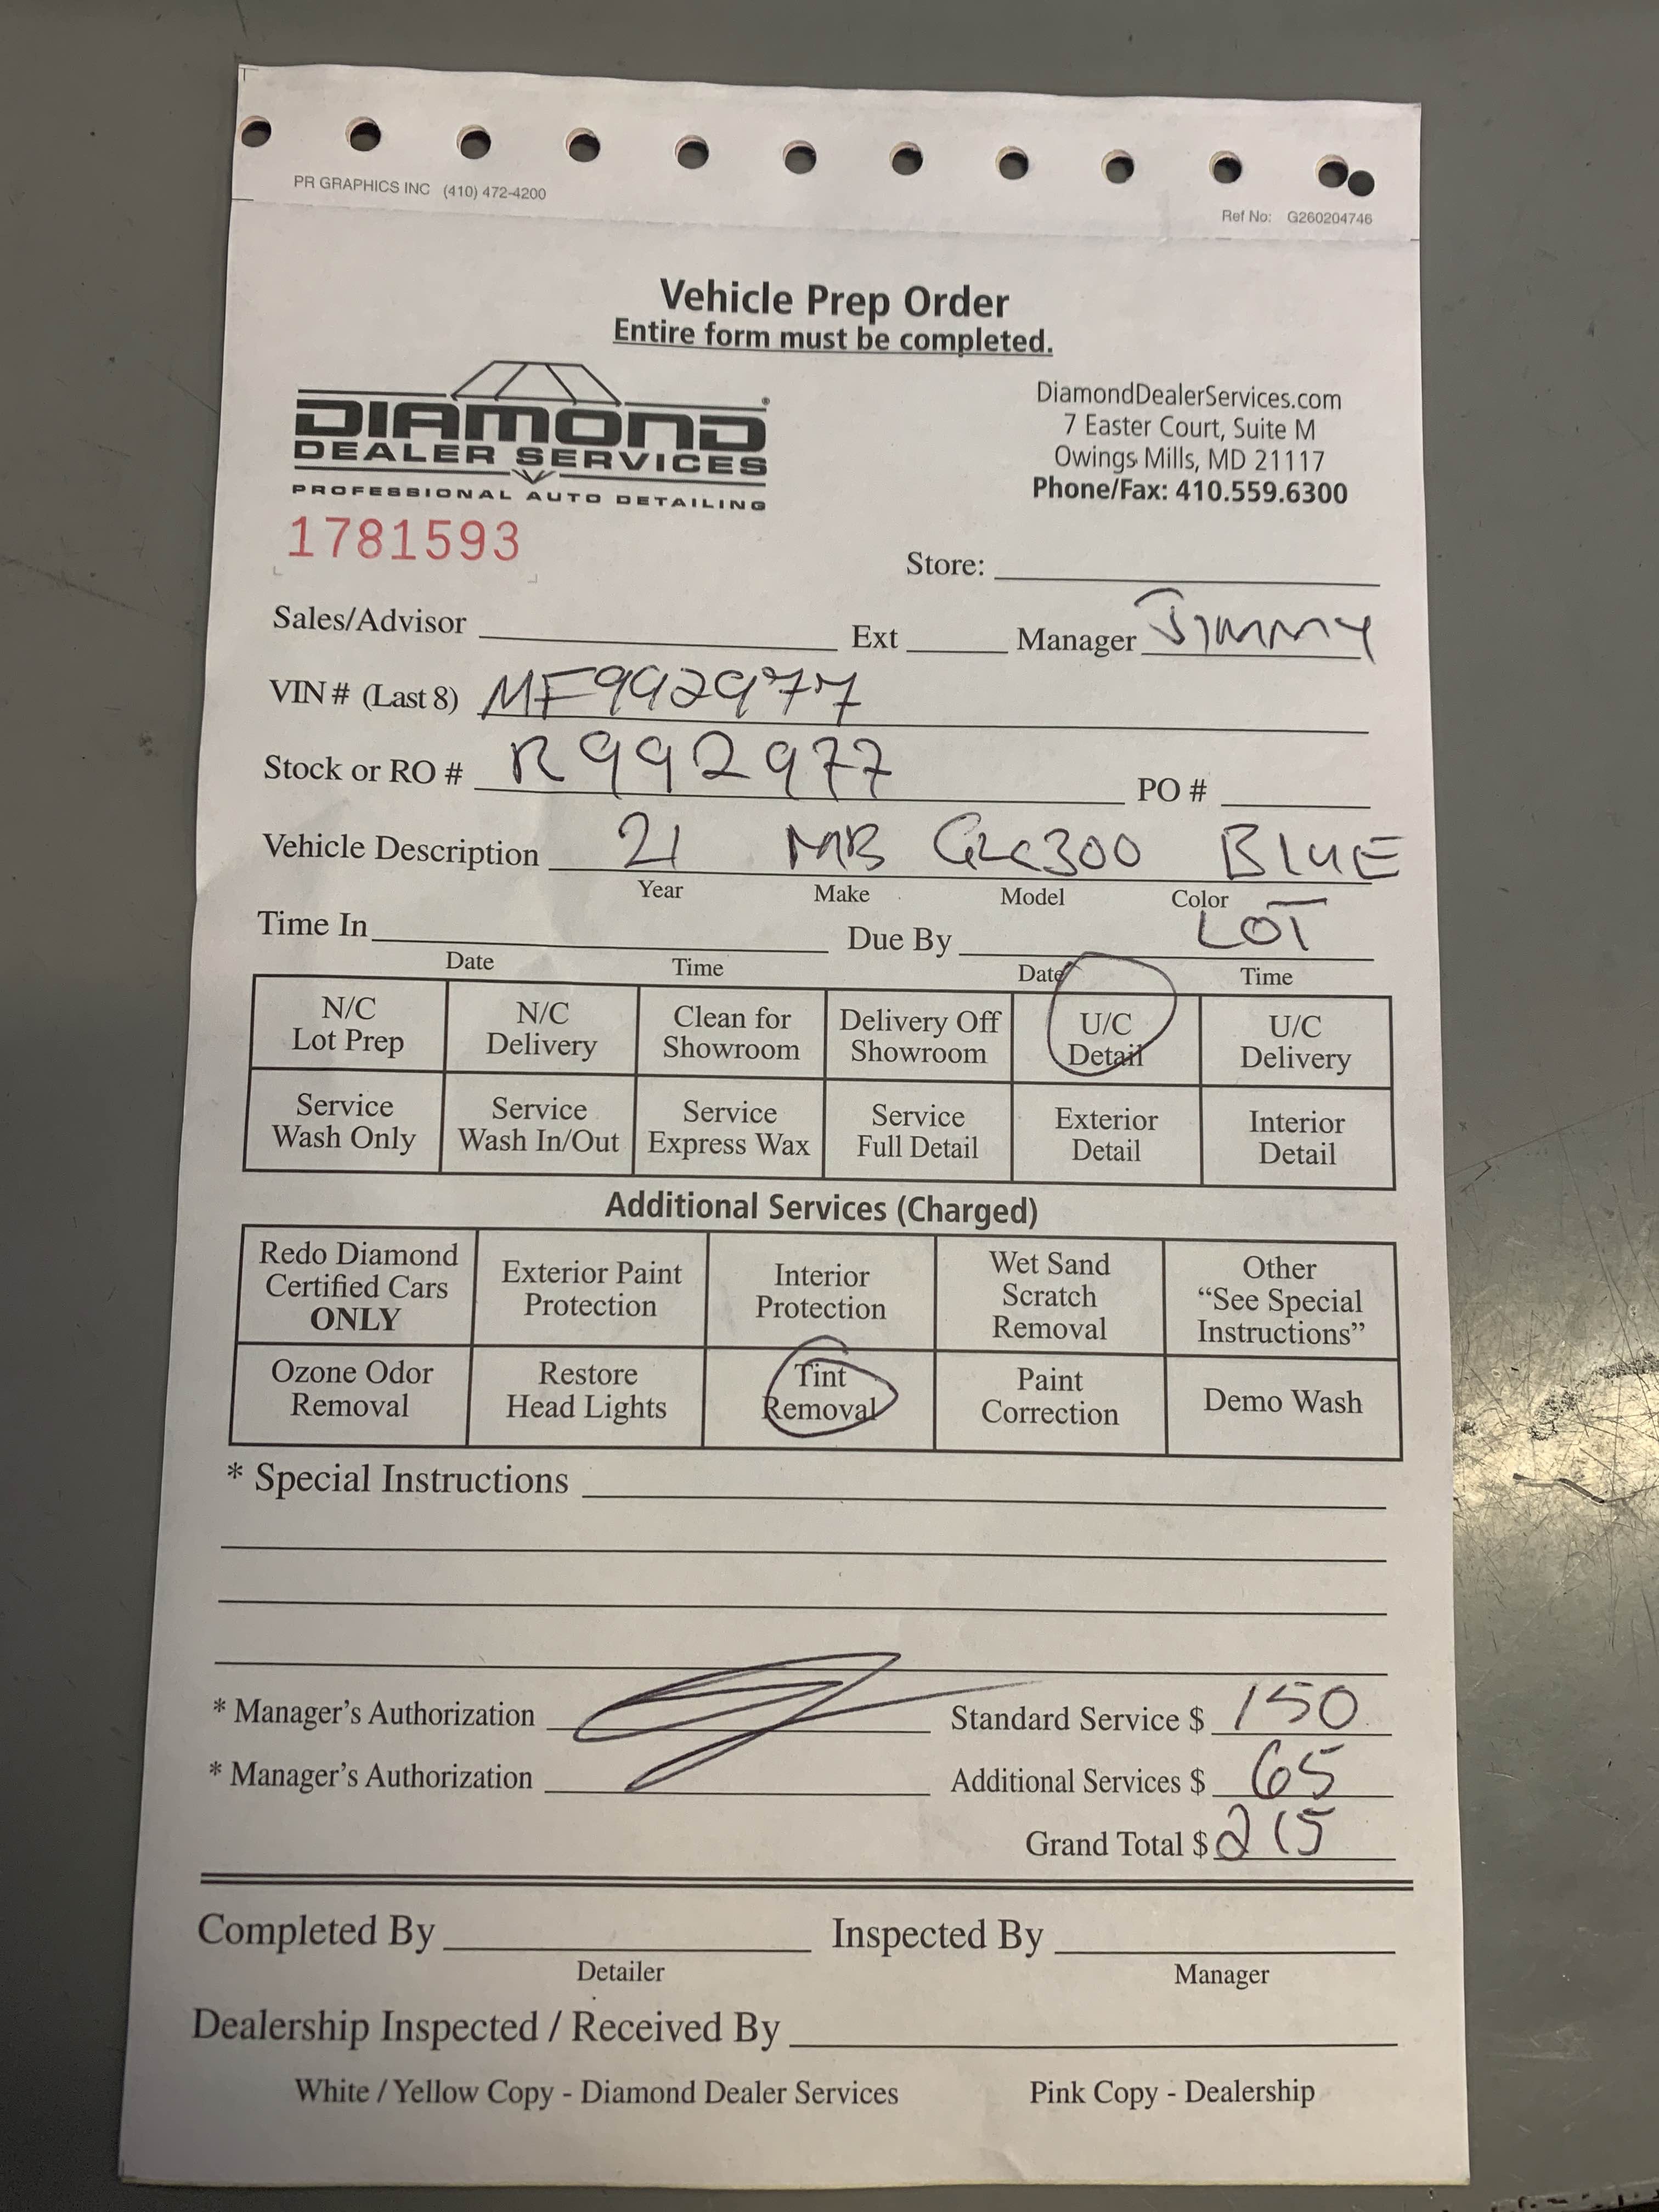 PR GRAPHICS INC (410) 472-4200
Ref No: G260204746
Vehicle Prep Order
Entire form must be completed.
DIAMOND
DEALER SERVICES
PROFESSIONAL AUTO DETAILING
DiamondDealerServices.com
7 Easter Court, Suite M
Owings Mills, MD 21117
Phone/Fax: 410.559.6300
1781593
Store:
Sales/Advisor Ext Manager Jimmy
VIN # (Last 8) MF992977
Stock or RO # R992977 PO #
Vehicle Description 21 MB GLC300 BLUE
Year Make Model Color
Time In Due By LOT
Date Time Date Time
N/C Lot Prep
N/C Delivery
Clean for Showroom
Delivery Off Showroom
U/C Detail
U/C Delivery
Service Wash Only
Service Wash In/Out
Service Express Wax
Service Full Detail
Exterior Detail
Interior Detail
Additional Services (Charged)
Redo Diamond Certified Cars ONLY
Exterior Paint Protection
Interior Protection
Wet Sand Scratch Removal
Other "See Special Instructions"
Ozone Odor Removal
Restore Head Lights
Tint Removal
Paint Correction
Demo Wash
* Special Instructions
* Manager's Authorization Standard Service $ 150
* Manager's Authorization Additional Services $ 65
Grand Total $ 215
Completed By Inspected By
Detailer Manager
Dealership Inspected / Received By
White / Yellow Copy - Diamond Dealer Services Pink Copy - Dealership